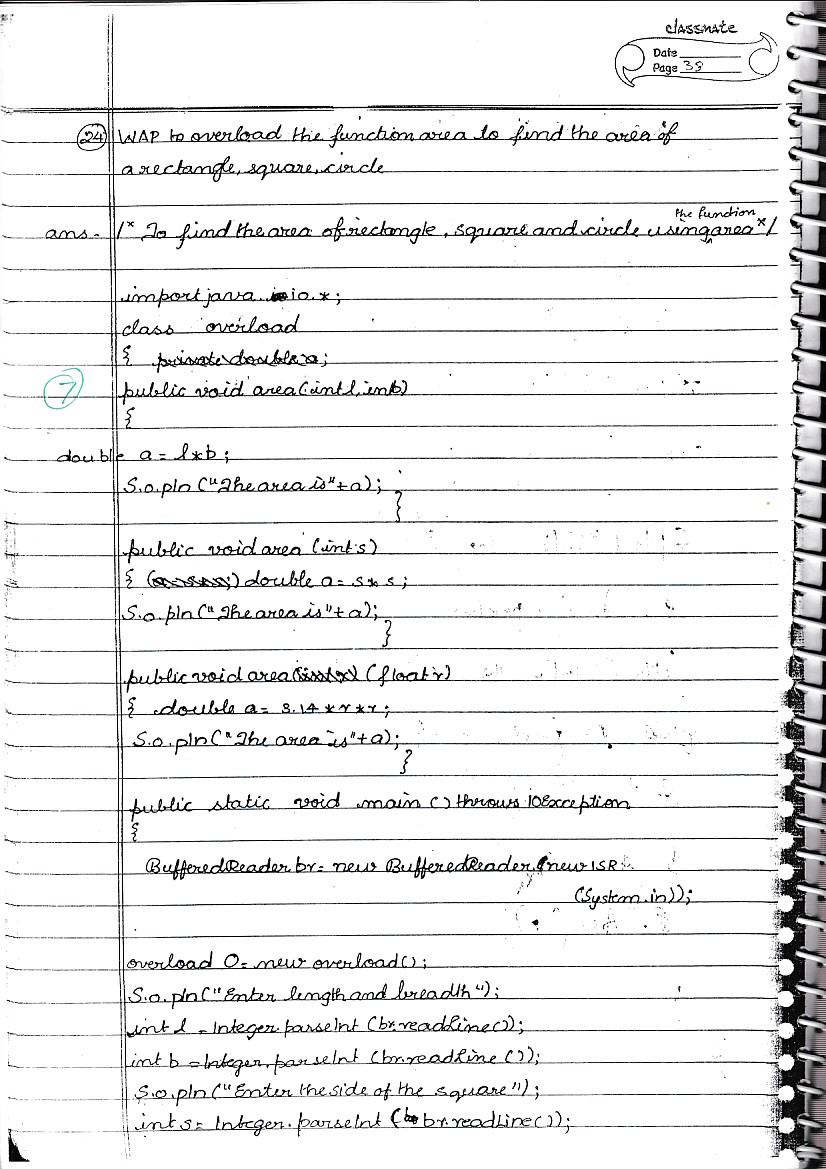 classmate
Date
Page 38
(24) WAP to overload the function area to find the area of
a rectangle, square, circle
ans- /* To find the area of rectangle, square and circle using the function area */
import java.io.*;
class overload
{ private double a;
(7)
public void area(int l, int b)
{
double a = l*b;
S.o.pln ("The area is"+a);
}
public void area (int s)
{ double a = s*s;
S.o.pln ("The area is"+a);
}
public void area (float r)
{ double a = 3.14 *r*r;
S.o.pln ("The area is"+a);
}
public static void main () throws IOException
{
BufferedReader br = new BufferedReader (new ISR
(System.in));
overload O = new overload();
S.o.pln ("Enter length and breadth");
int l = Integer.parseInt (br.readLine());
int b = Integer.parseInt (br.readLine ());
S.o.pln ("Enter the side of the square");
int s = Integer.parseInt (br.readLine());